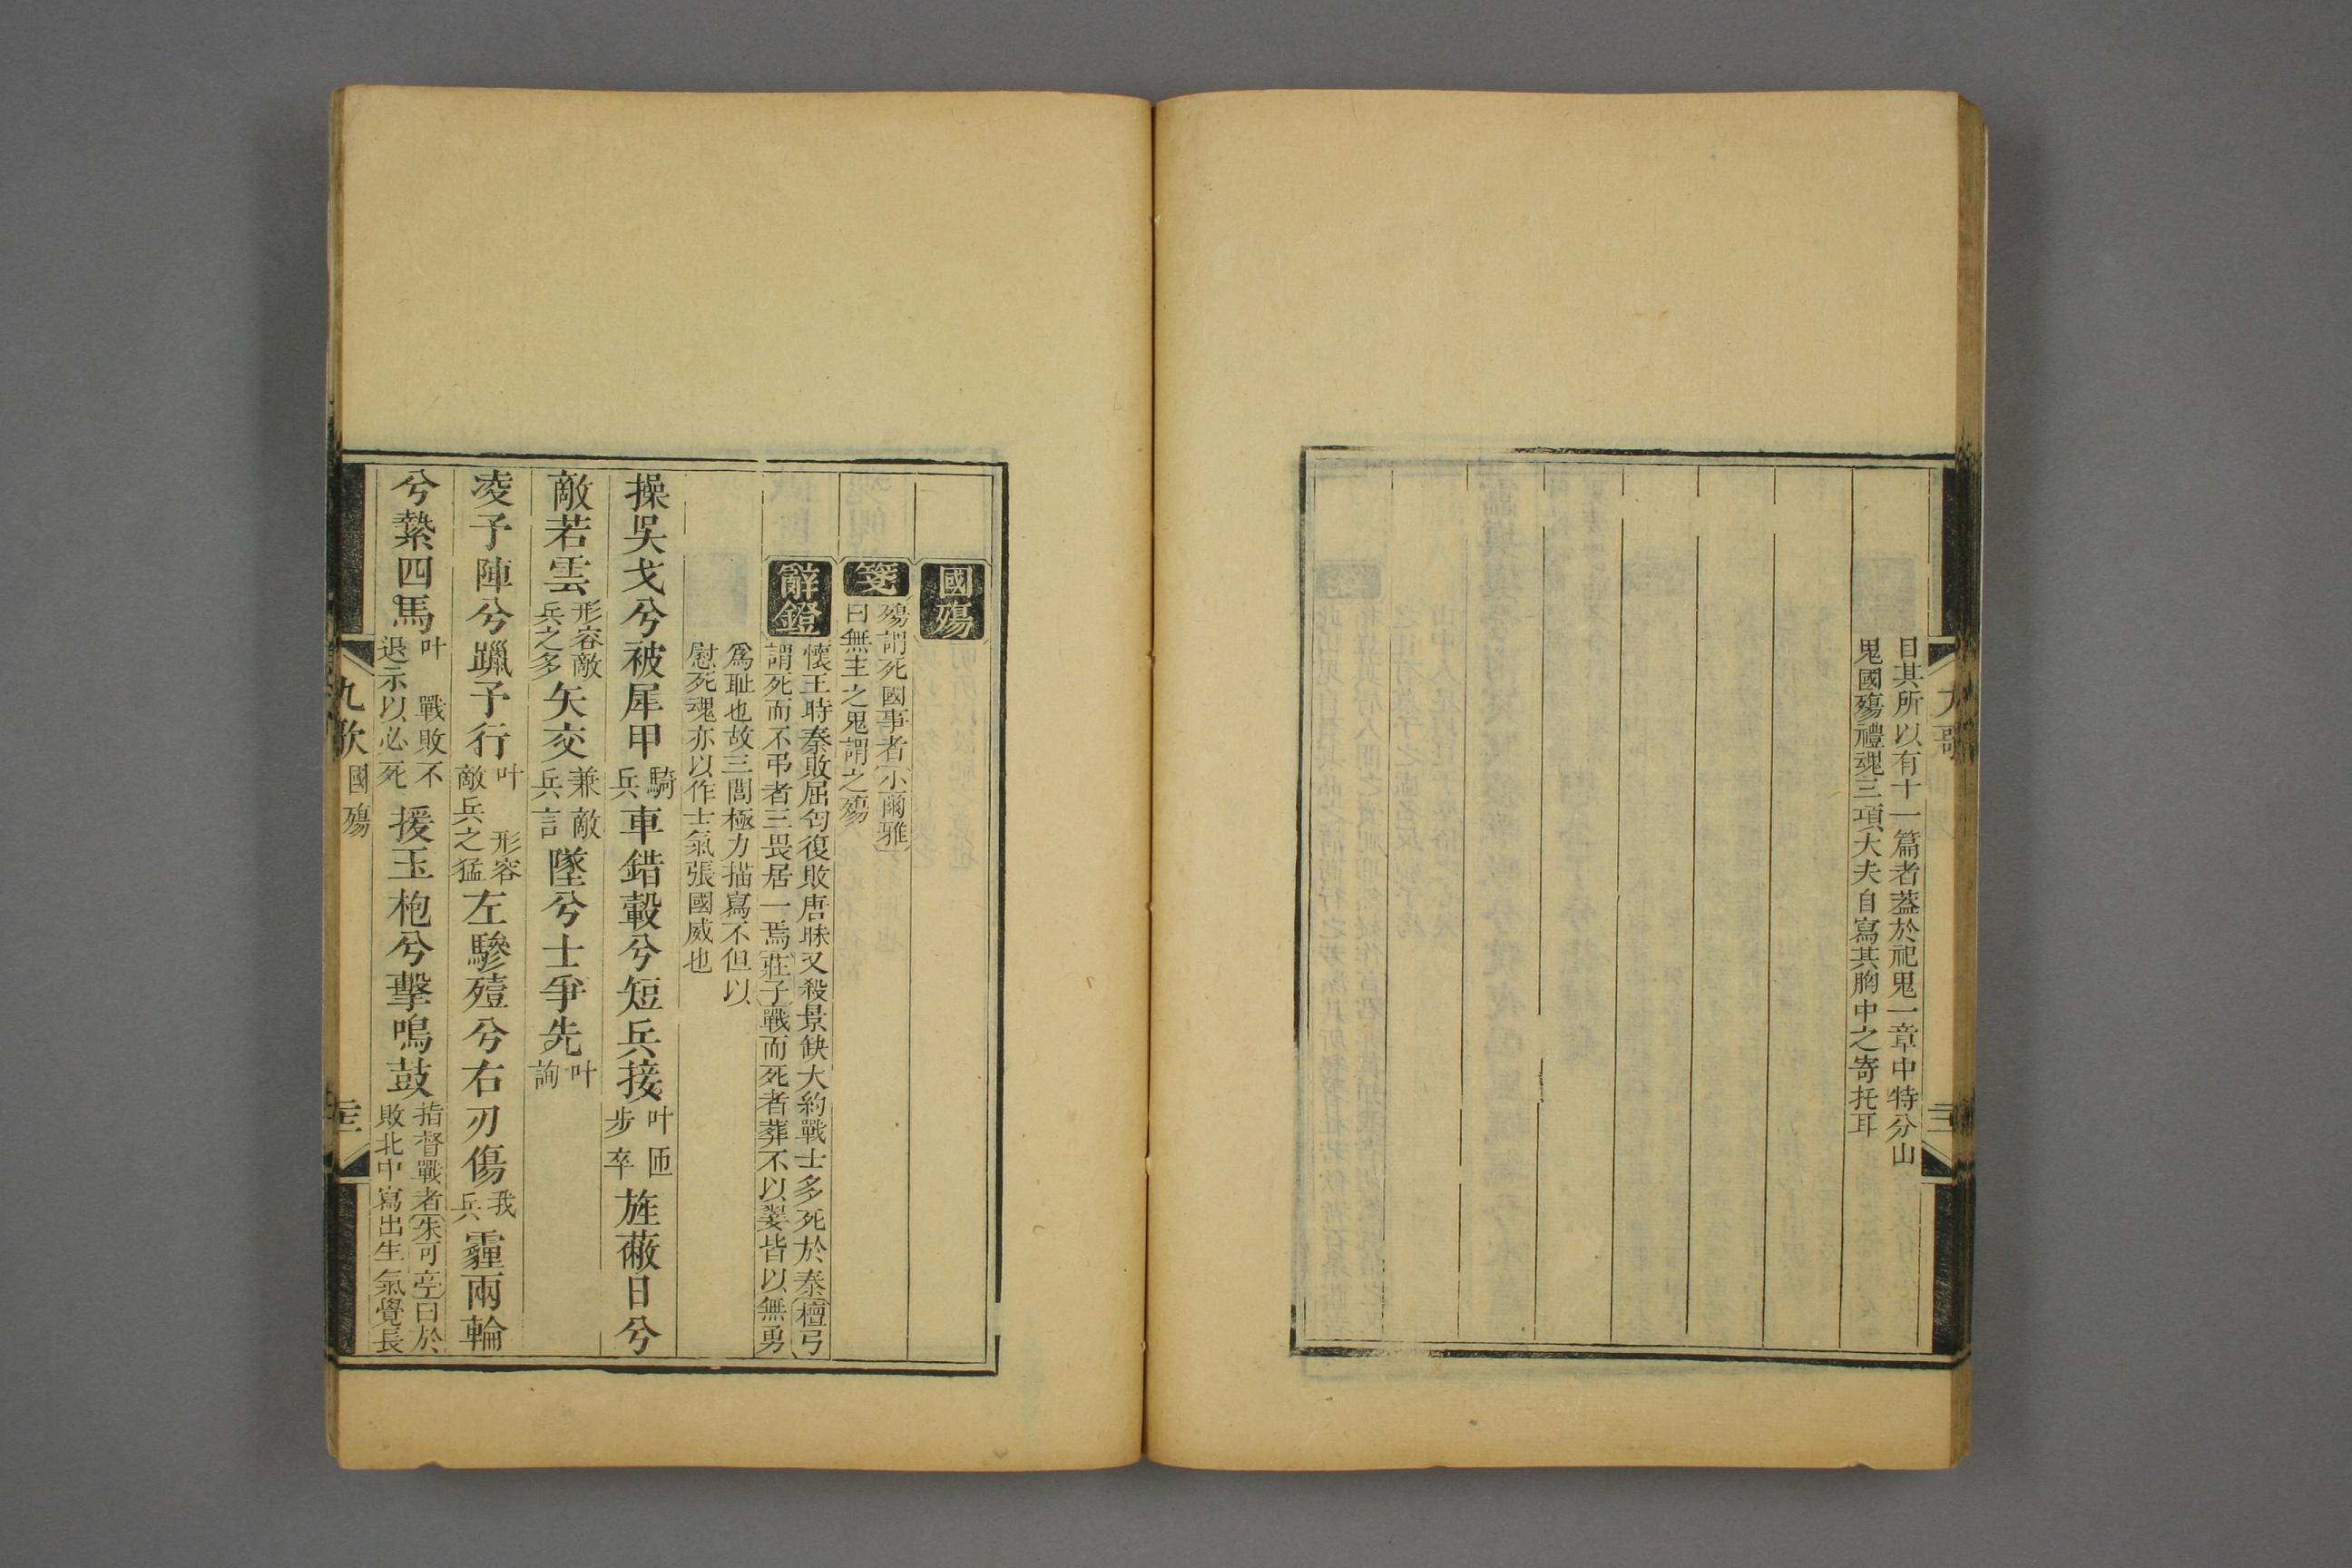 目其所以有十一篇者葢於祀鬼一章中特分山
鬼國殤禮魂三項大夫自寫其胸中之寄托耳
國殤
箋 殤謂死國事者小爾雅
曰無主之鬼謂之殤
辭鐙 懷王時秦敗屈匄復敗唐昧又殺景缺大約戰士多死於秦檀弓
謂死而不弔者三畏居一焉莊子戰而死者葬不以翣皆以無勇
爲恥也故三閭極力描寫不但以
慰死魂亦以作士氣張國威也
操吳戈兮被犀甲騎兵車錯轂兮短兵接叶匝步卒旌蔽日兮
敵若雲形容敵兵之多矢交兼敵兵言墜兮士爭先叶詢
凌予陣兮躐予行叶形容敵兵之猛左驂殪兮右刃傷我兵霾兩輪
兮縶四馬叶戰敗不退示以必死援玉枹兮擊鳴鼓指督戰者朱可亭曰於敗北中寫出生氣覺長
九歌 國殤